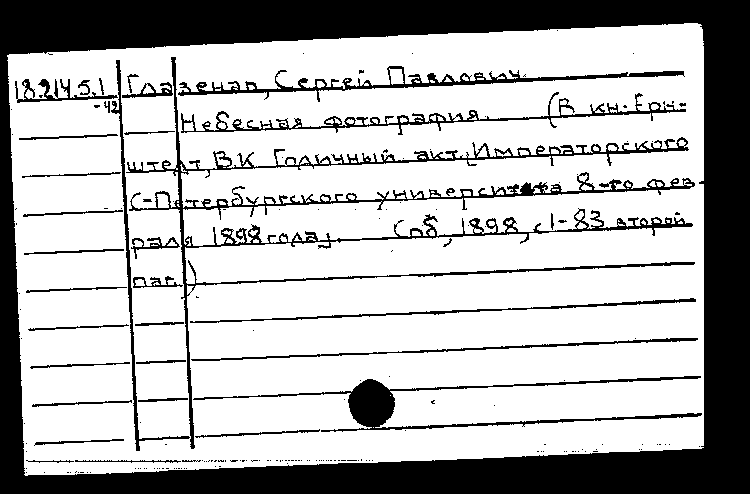 18.214.5.1 Глазенап, Сергей Павлович.
-42
Небесная фотография. (В кн: Ерн-
штедт, В.К Годичный акт [Императорского
С-Петербургского университета 8-го фев-
раля 1898 года]. Спб, 1898, с 1-83 второй
паг.)